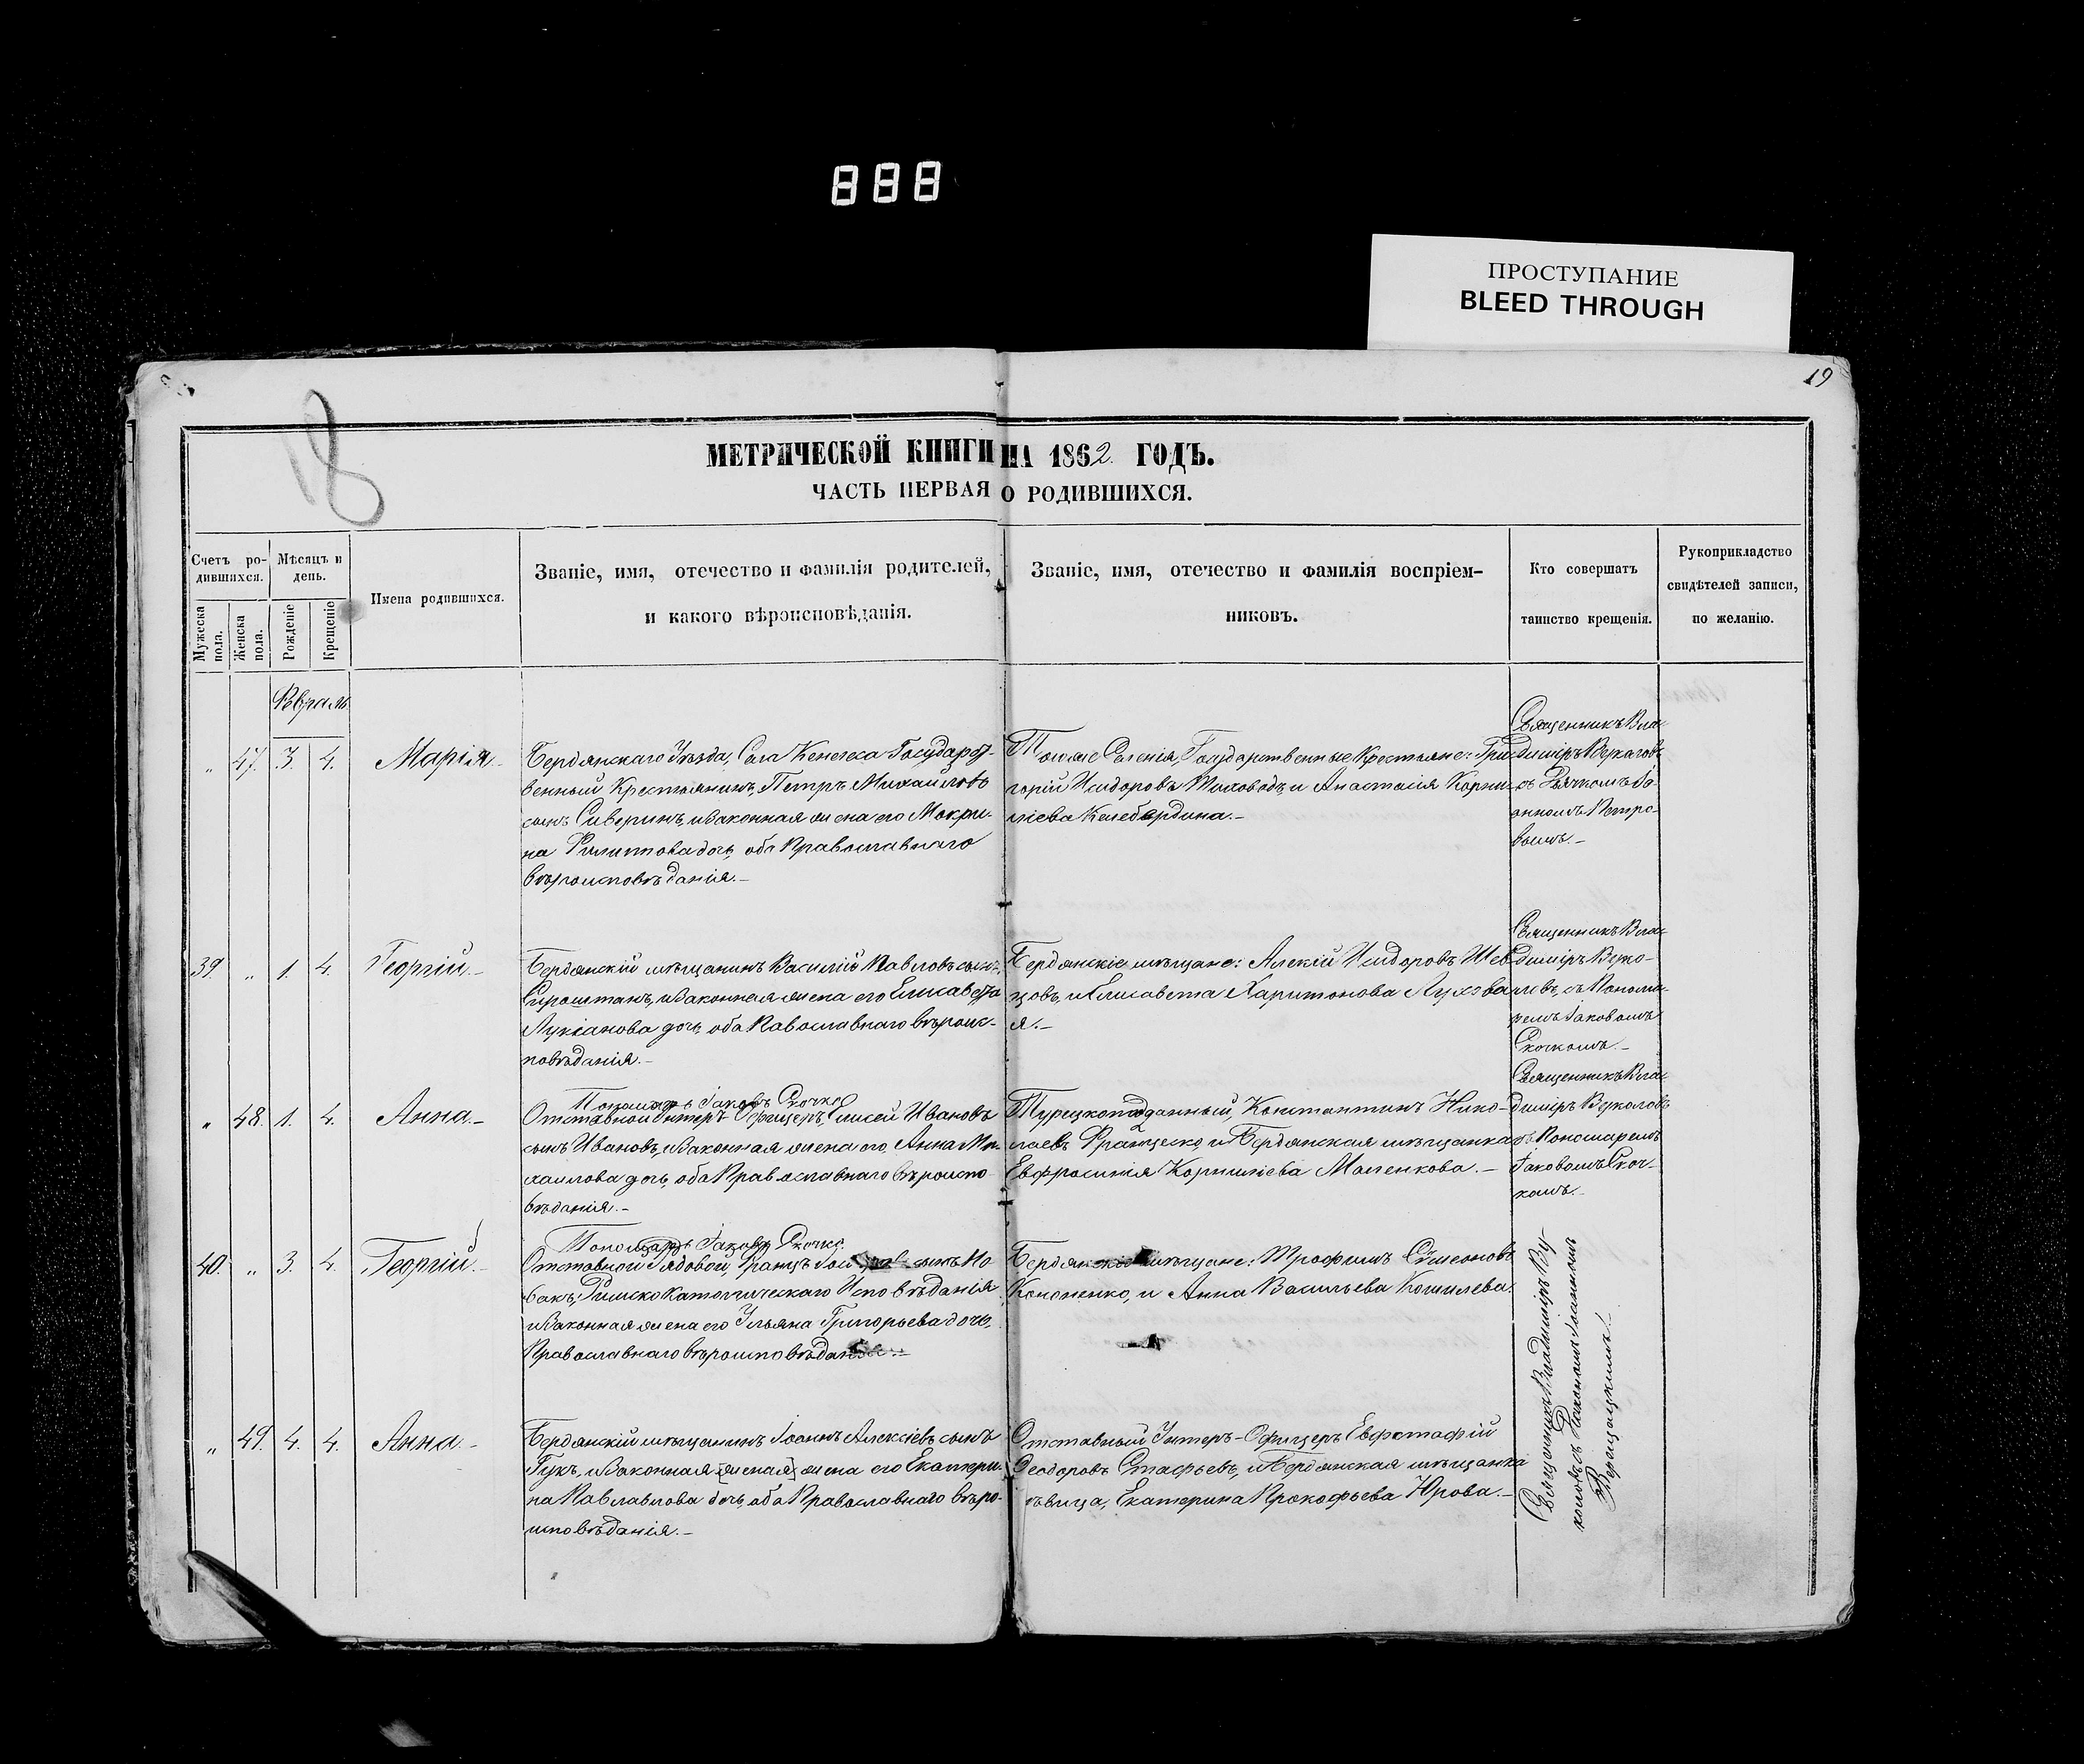 888
ПРОСТУПАНИЕ
BLEED THROUGH
19
18
МЕТРИЧЕСКОЙ КНИГИ НА 1862. ГОДЪ.
ЧАСТЬ ПЕРВАЯ О РОДИВШИХСЯ.
Счетъ ро-
дившихся.
Мужеска пола.
Женска пола.
Мѣсяцъ и
день.
Рожденіе
Крещеніе
Имена родившихся.
Званіе, имя, отечество и фамилія родителей,
и какого вѣроисповѣданія.
Званіе, имя, отечество и фамилія воспріем-
никовъ.
Кто совершатъ
таинство крещенія.
Рукоприкладство
свидѣтелей записи,
по желанію.
„ 47. 3. 4. Марія.-
Бердянскаго Уѣзда, Села Кенегеса Государст-
венный Крестьянинъ, Петръ Михайловъ
сынъ Сиверинъ, и законная жена его Макри-
на Филиппова дочь, оба Православнаго
вѣроисповѣданія.-
Тогоже Селенія, Государственные Крестьяне: Гри-
горій Исидоровъ и Анастасія Корни-
ліева Келебердина.-
Священникъ Вла-
диміръ
съ Дьячкомъ Іо-
анномъ Петро-
вымъ.-
39. „ 1. 4. Георгій.-
Бердянскій мѣщанинъ Василій Павловъ сынъ,
Сыроштанъ, и законная жена его Елисавета
Лукіанова дочь, оба Павославнаго вѣроис-
повѣданія.-
Бердянскіе мѣщане: Алексій Исидоровъ Шев-
цовъ, и Елисавета Харитонова
я.-
Священникъ Вла-
диміръ
съ Понома-
ремъ Іаковомъ
Скочкомъ.-
„ 48. 1. 4. Анна.-
Пономарь Іаковъ Скочко
Отставной Унтеръ Офицеръ, Елисей Ивановъ
сынъ Ивановъ, и законная жена его, Анна Ми-
хаилова дочь, оба Православнаго вѣроиспо-
вѣданія.-
Турецкоподданный, Константинъ Нико-
лаевъ Францеско, и Бердянская мѣщанка
Евфросинія Корниліева Маленкова.-
Священникъ Вла-
диміръ
съ Пономаремъ
Іаковомъ Скоч-
комъ.-
40. „ 3. 4. Георгій.-
Пономарь Іаковъ Скочко.
Отставной Рядовой, Францъ сынъ Но-
вакъ, Римско Католическаго Исповѣданія
и законная жена его Ульяна Григорьева дочь,
Православнаго вѣроисповѣданія.-
Бердянскіе мѣщане: Трофимъ Сѵмеоновъ
Кононенко, и Анна Васильева Кошелева.
„ 49. 4. 4. Анна.-
Бердянскій мѣщанинъ Іоаннъ Алексіевъ сынъ
Гукъ, и законная жена его Екатери-
на Павлавлова дочь, оба Православнаго вѣро-
исповѣданія.-
Отставный Унтеръ-Офицеръ Евфстафій
Ѳеодоровъ Стафьевъ, и Бердянская мѣщанка
дѣвица, Екатерина Прокофьева Юрова.-
Священникъ Владиміръ
съ Діакономъ Іоанномъ